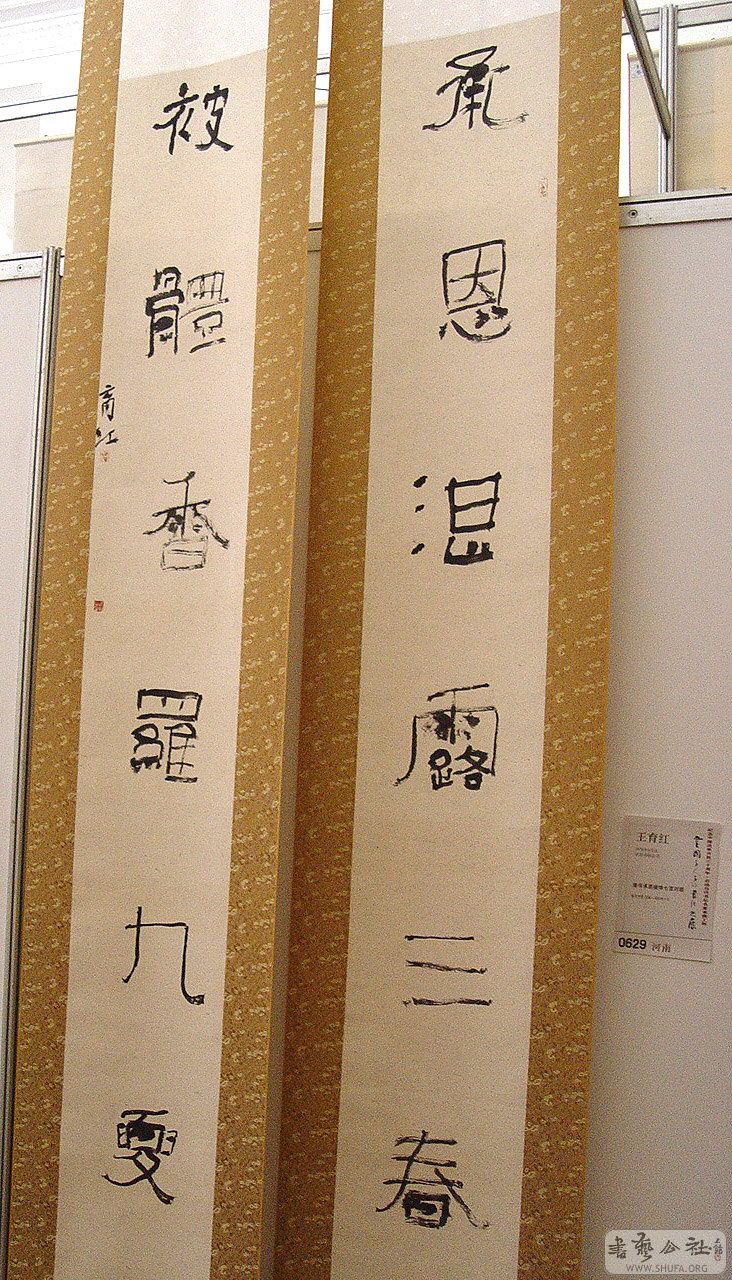 承恩湛露三春
被體香羅九夏
育红
王育红
0629 河南
書藝公社
WWW.SHUFA.ORG